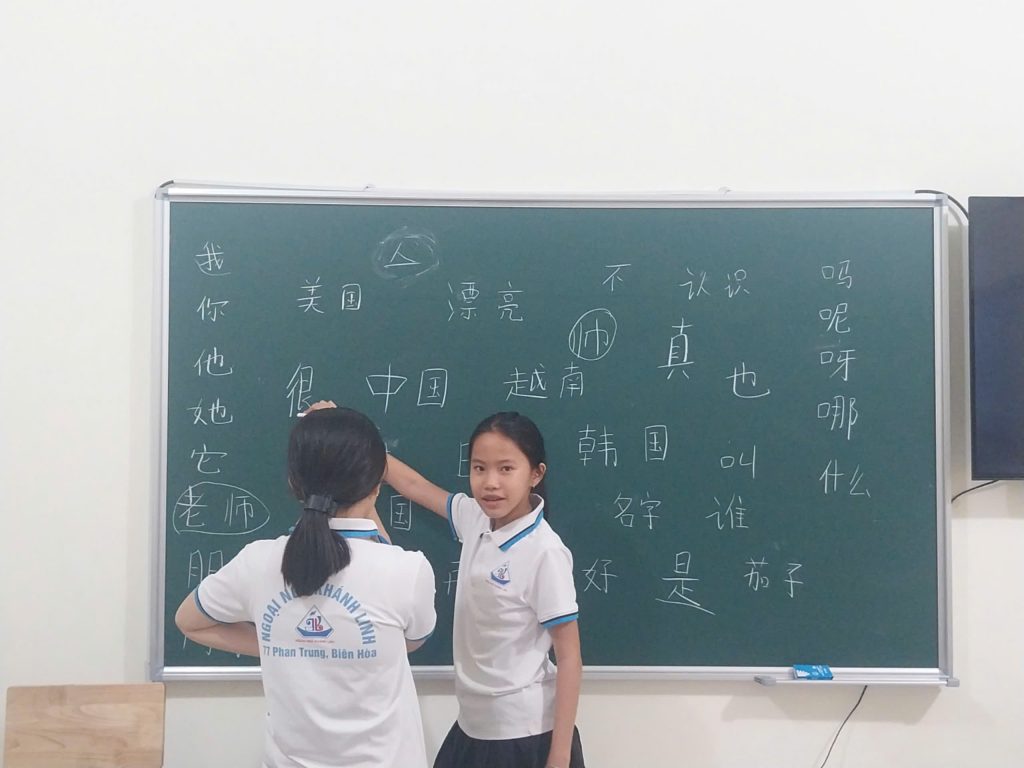 我
你
他
她
它
老师
人
美国
漂亮
不
认识
帅
真
很
中国
越南
也
韩国
叫
国
名字
谁
好
是
茄子
吗
呢
呀
哪
什么
NGOẠI NGỮ KHÁNH LINH
77 Phan Trung, Biên Hòa